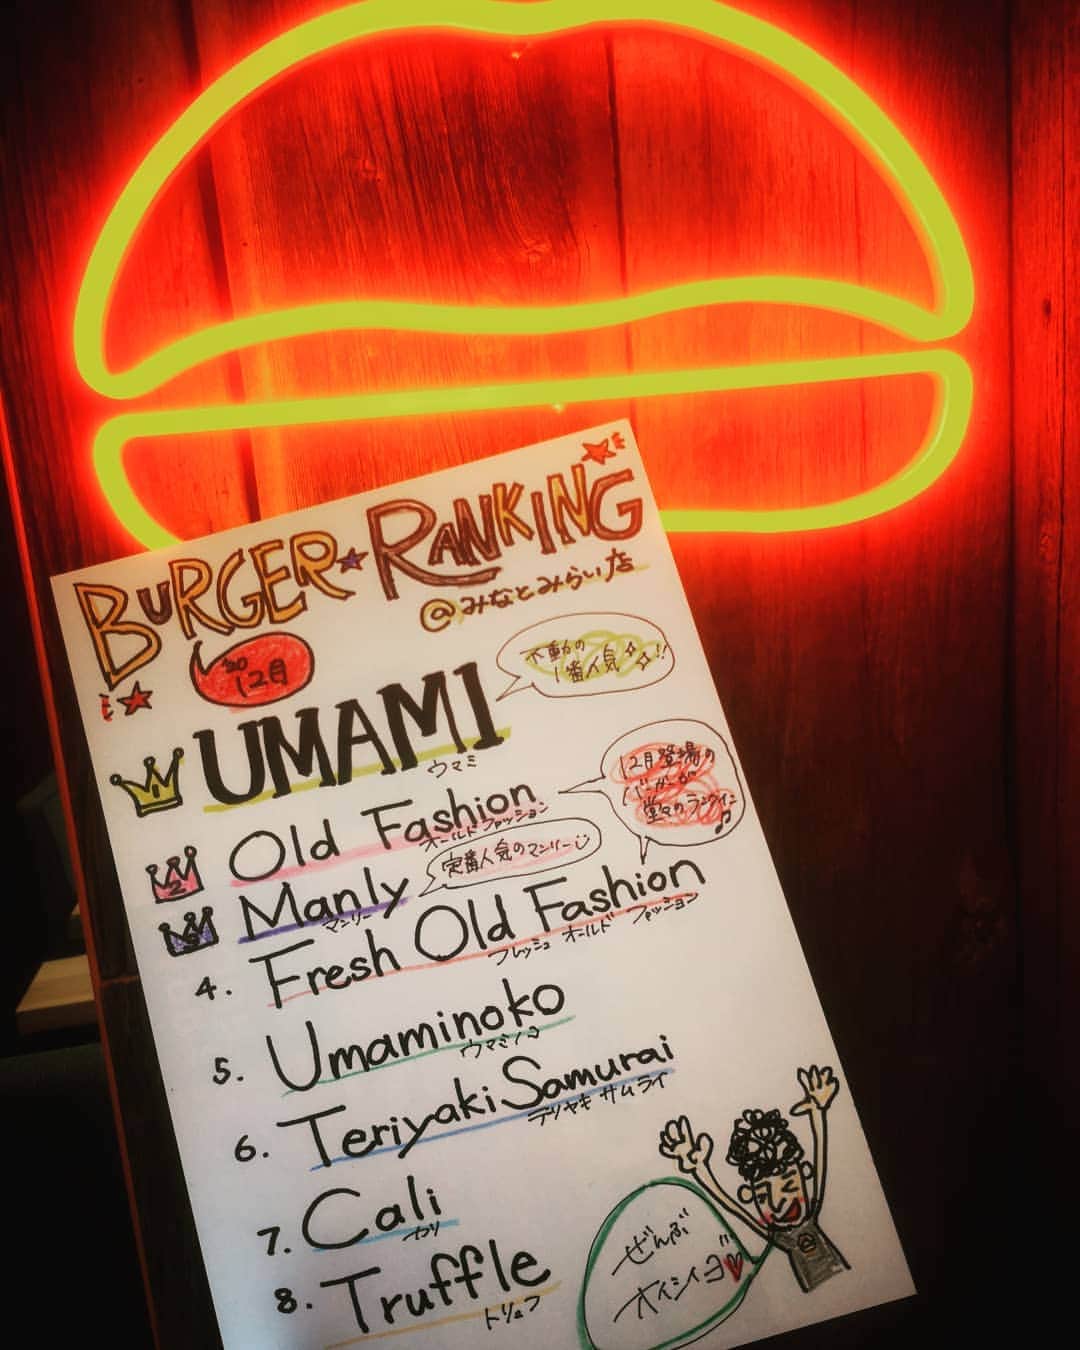 BURGER★RANKING
@みなとみらい店
'20
12月
不動の
1番人気!!
1
UMAMI
ウマミ
2
Old Fashion
オールド ファッション
12月登場の
バーガーが
堂々のランクイン♫
3
Manly
マンリー
定番人気のマンリー
4. Fresh Old Fashion
フレッシュ オールド ファッション
5. Umaminoko
ウマミノコ
6. Teriyaki Samurai
テリヤキ サムライ
7. Cali
カリ
8. Truffle
トリュフ
ぜんぶ
オイシイヨ